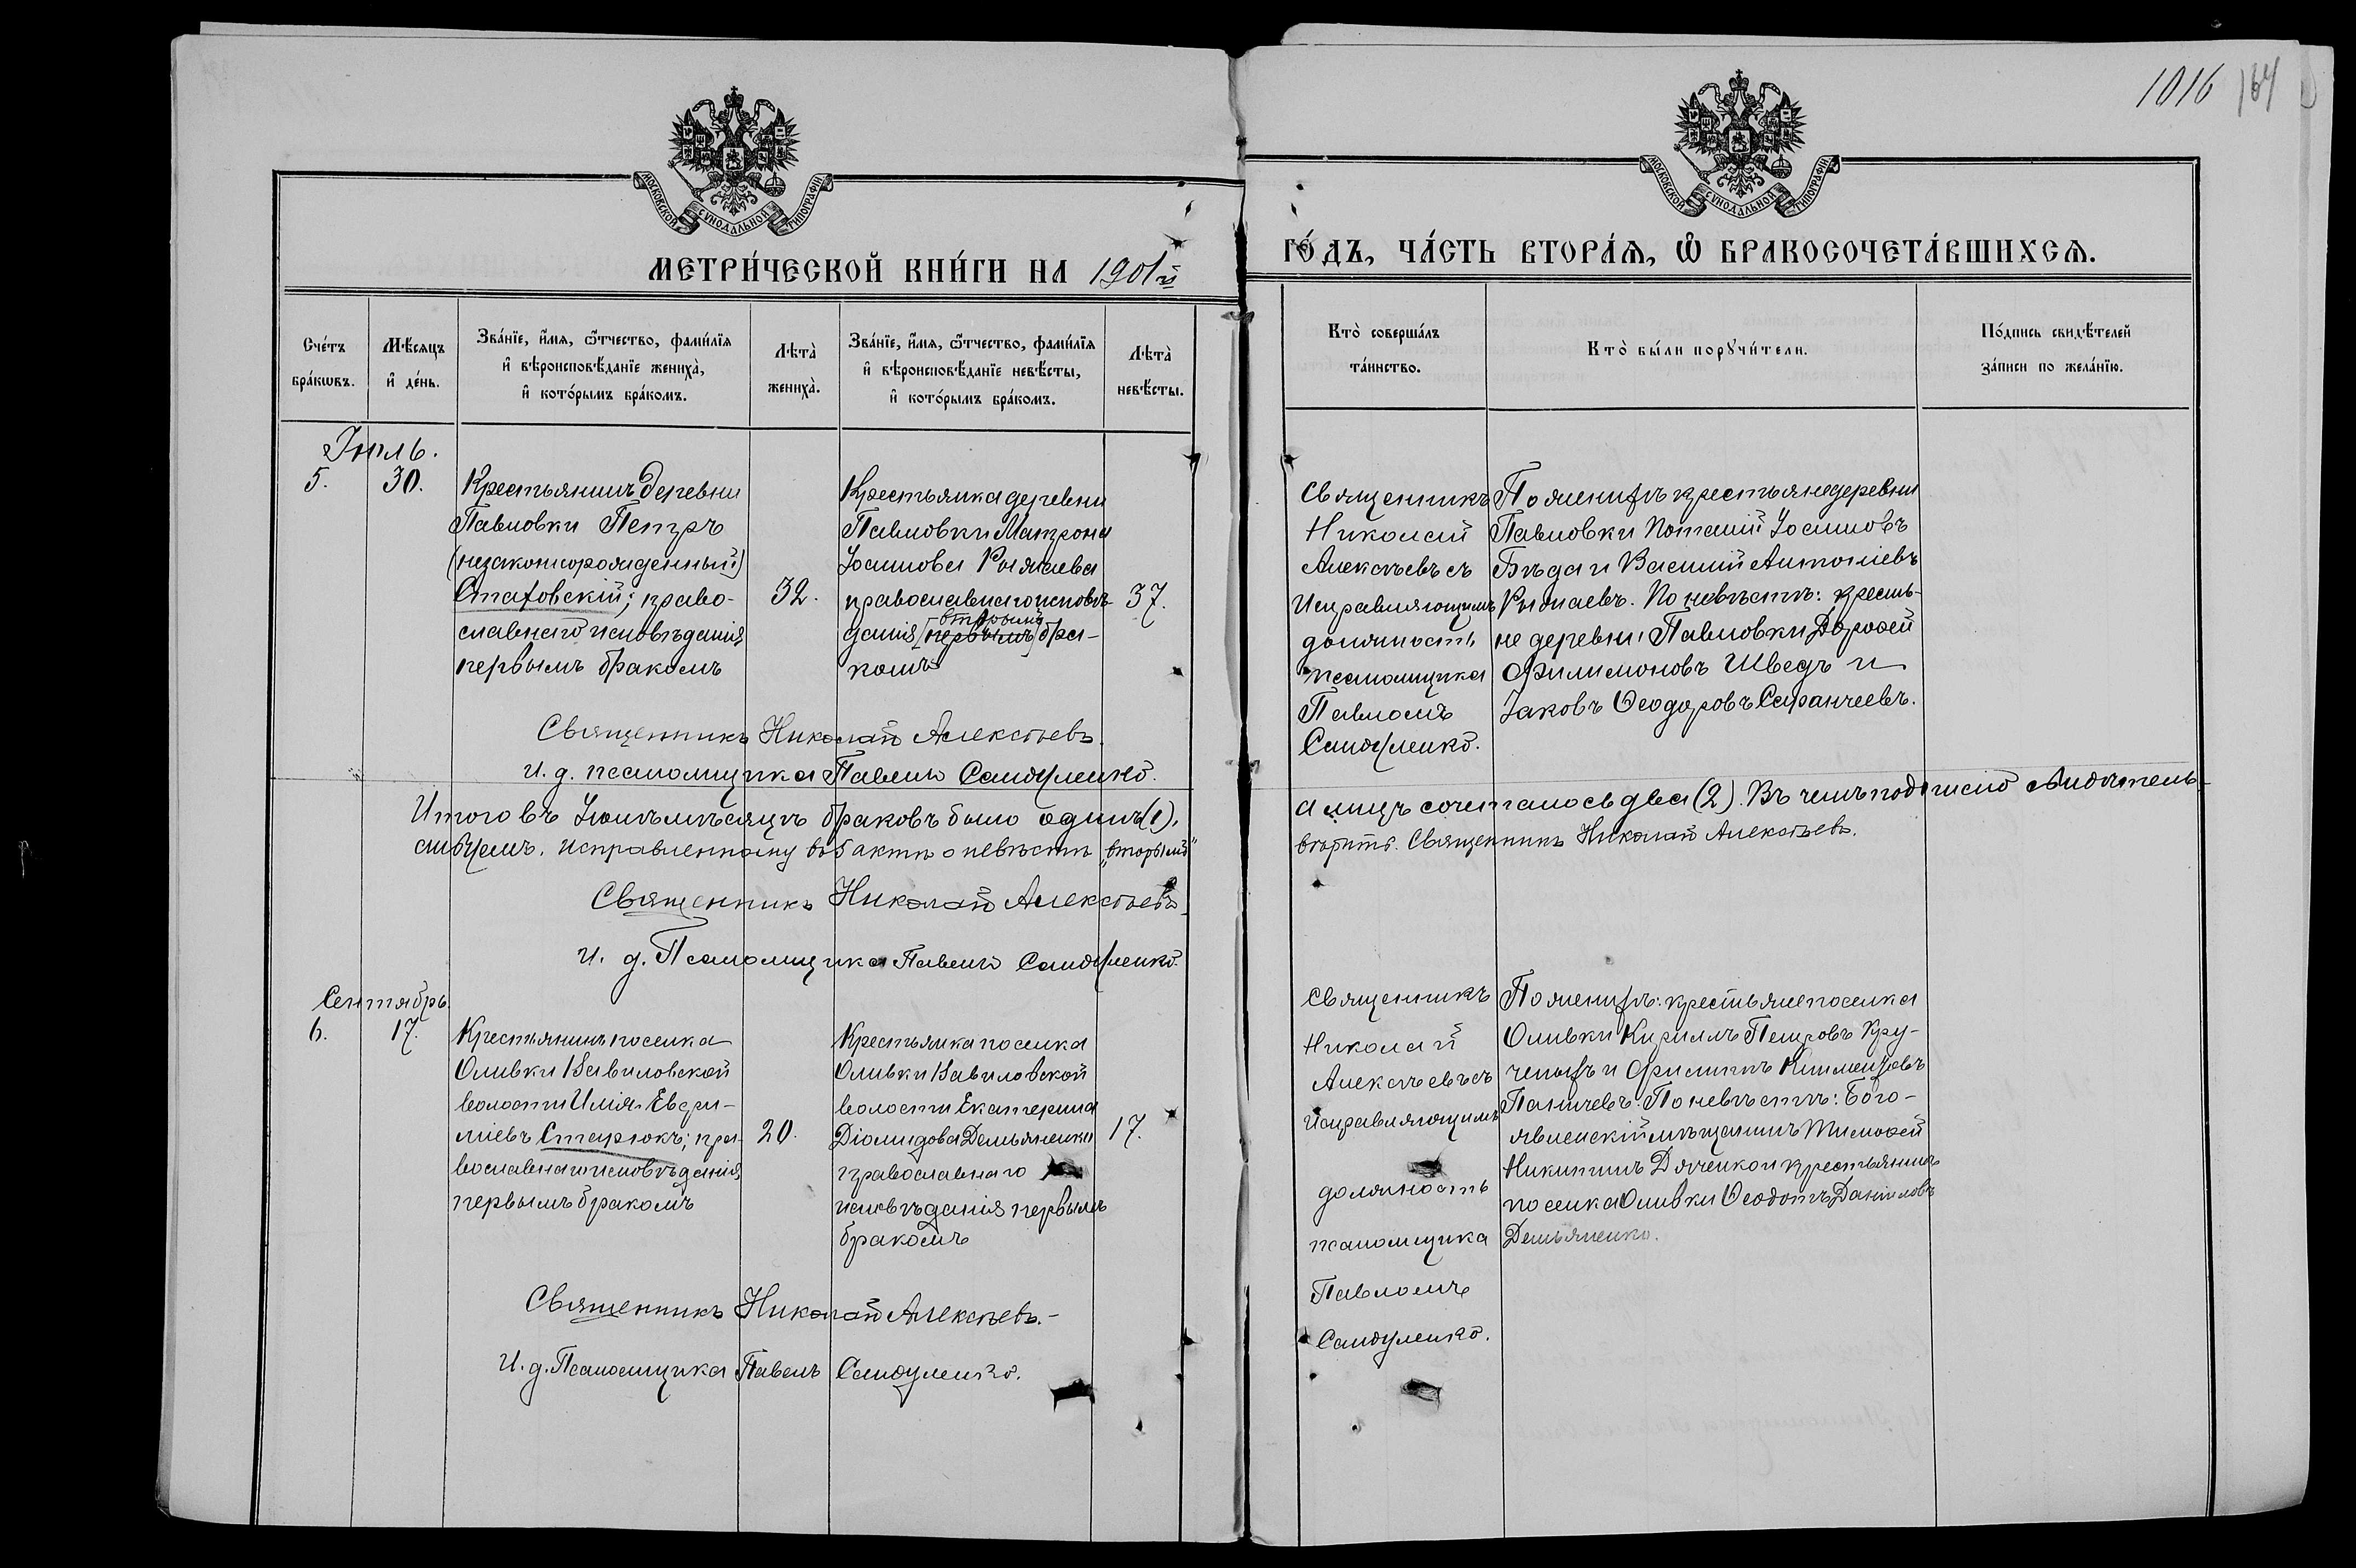 1016 164
МОСКОВСКОЙ СѴНОДАЛЬНОЙ ТИПОГРАФІИ
МОСКОВСКОЙ СѴНОДАЛЬНОЙ ТИПОГРАФІИ
МЕТРИ́ЧЕСКОЙ КНИ́ГИ НА 1901й
ГО́ДЪ, ЧА́СТЬ ВТОРА́Ѧ, Ѡ҆ БРАКОСОЧЕТА́ВШИХСѦ.
Сче́тъ
бра́кѡвъ.
Мѣ́сяцъ
и҆ де́нь.
Зва́нїе, и҆́мѧ, ѻ҆́тчество, фами́лїѧ
и҆ вѣроисповѣ́данїе жениха̀,
и҆ кото́рымъ бра́комъ.
Лѣта̀
жениха̀.
Зва́нїе, и҆́мѧ, ѻ҆́тчество, фами́лїѧ
и҆ вѣроисповѣ́данїе невѣ́сты,
и҆ кото́рымъ бра́комъ.
Лѣта̀
невѣ́сты.
Кто̀ соверша́лъ
та́инство.
Кто̀ бы́ли порꙋчи́тели.
По́дпись свидѣ́телей
за́писи по жела́нїю.
Іюль.
5.
30.
Крестьянинъ деревни
Павловки Петръ
(незаконнорожденный)
Стаховскій; право-
славнаго исповѣданія
первымъ бракомъ
32.
Крестьянка деревни
Павловки Матрона
Іоаннова Рыжаева
православнаго исповѣ-
вторымъ
данія [первымъ] бра-
комъ
37.
Священникъ
Николай
Алексѣевъ съ
Исправляющимъ
должность
псаломщика
Павломъ
Сандуленко.
По женихѣ крестьяне деревни
Павловки Потапій Іоанновъ
Бѣда и Василій Антоніевъ
Рыжаевъ. По невѣстѣ: крестья-
не деревни Павловки Дорофей
Филимоновъ Шведъ и
Іаковъ Ѳеодоровъ Саранчеевъ.
Священникъ Николай Алексѣевъ.
И. д. псаломщика Павелъ Сандуленко.
Итого въ Іюлѣ мѣсяцѣ браковъ было одинъ (1),
а лицъ сочеталось два (2). Въ чемъ подписью свидѣтель-
ствуемъ. Исправленному въ 5 актѣ о невѣстѣ „вторымъ"
вѣрить. Священникъ Николай Алексѣевъ.
Священникъ Николай Алексѣевъ
И. д. Псаломщика Павелъ Сандуленко.
Сентябрь
6.
17.
Крестьянинъ поселка
Оливки Вавиловской
волости Илія Евдам-
піевъ Старюкъ; пра-
вославнаго исповѣданія
первымъ бракомъ
20.
Крестьянка поселка
Оливки Вавиловской
волости Екатерина
Діомидова Демьяненко
православнаго
исповѣданія первымъ
бракомъ
17.
Священникъ
Николай
Алексѣевъ съ
Исправляющимъ
должность
псаломщика
Павломъ
Сандуленко.
По женихѣ: крестьяне поселка
Оливки Кириллъ Петровъ Кру-
и Филиппъ Климентовъ
Паничевъ. По невѣстѣ: Бого-
явленскій мѣщанинъ Тимофей
Никитинъ Дяченко и крестьянинъ
поселка Оливки Ѳеодотъ Даніиловъ
Демьяненко.
Священникъ Николай Алексѣевъ.-
И. д. Псаломщика Павелъ Сандуленко.